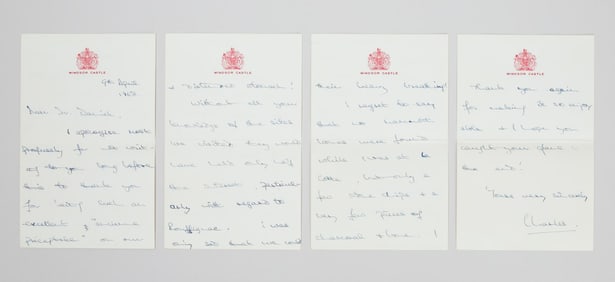 WINDSOR CASTLE
9th April
1968
Dear Dr. Daniel,
I apologise most
profusely for not
to you long before
this to thank you
for such an
excellent
on our
WINDSOR CASTLE
Without all your
knowledge of the sites
we visited they would
have held only half
the interest, particul-
arly with regard to
Rouffignac. I was
only sad that we could
WINDSOR CASTLE
their being
I regret to say
that no
bones were found
while I was at La
Cotte, but only a
few stone chips & a
very few pieces of
charcoal & bone!
WINDSOR CASTLE
Thank you again
for making it so enjoy-
able & I hope you
caught your plane in
the end!
Yours very sincerely
Charles.